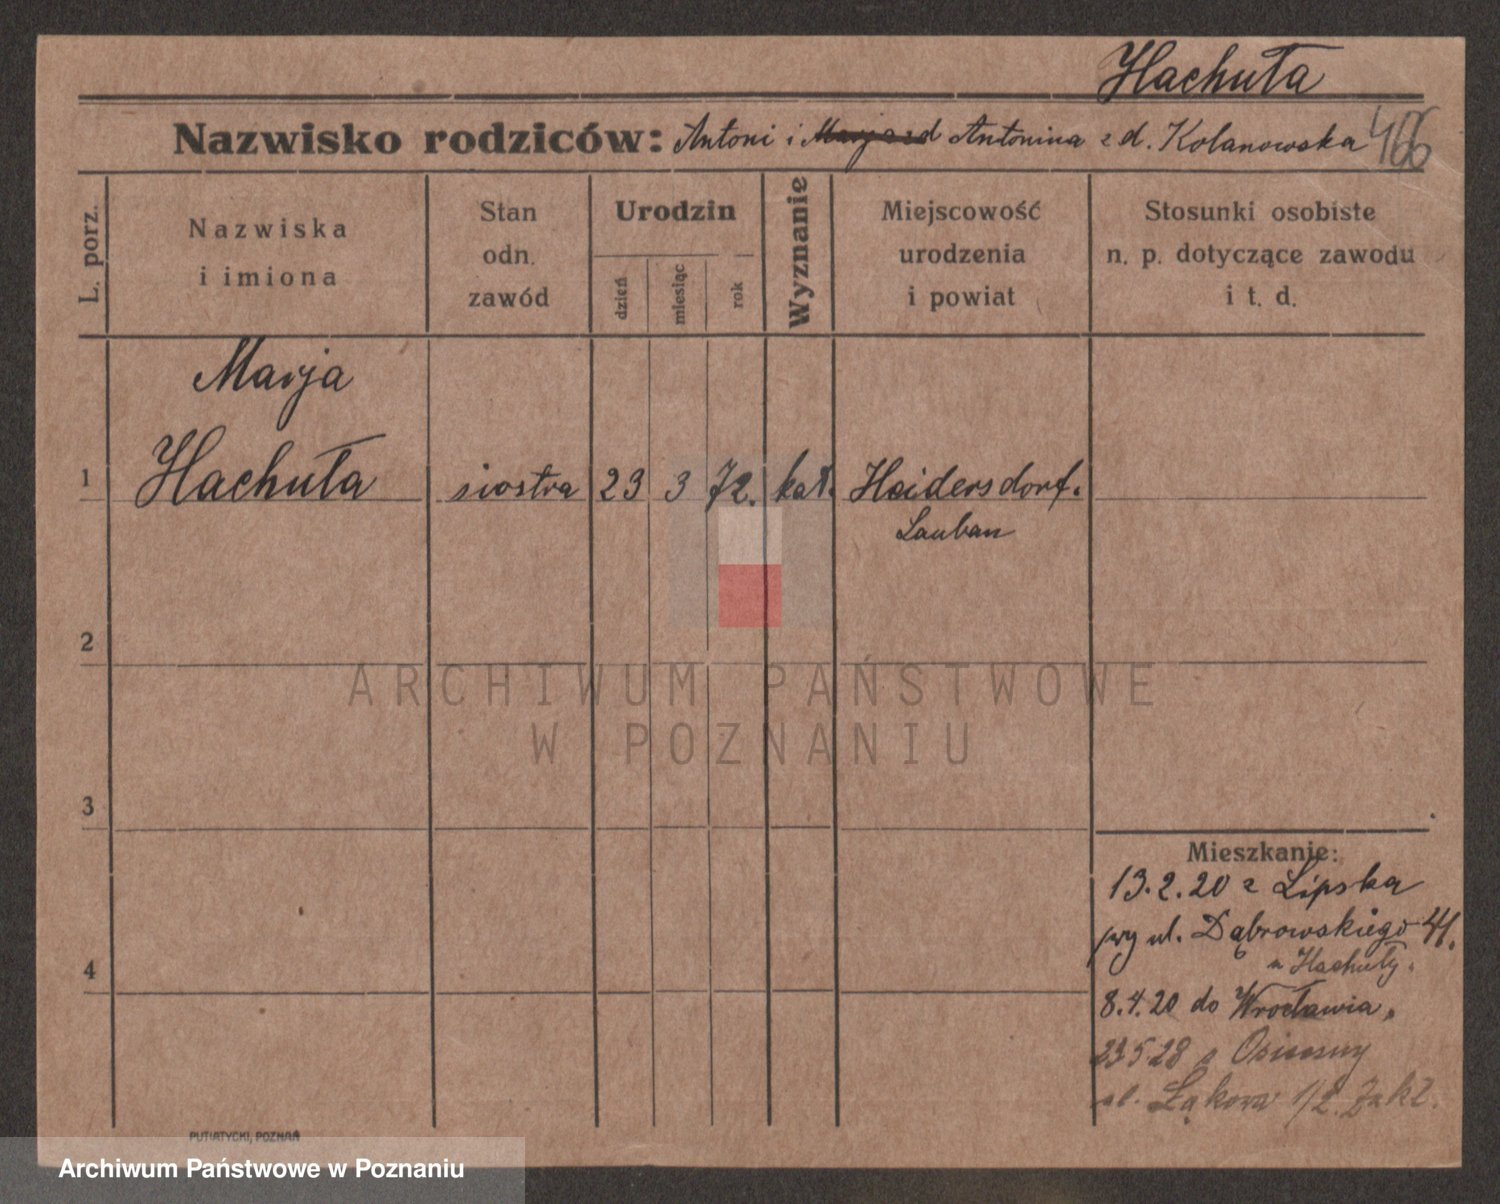 Hachuła
Nazwisko rodziców: Antoni i Marja z d Antonina z d. Kolanowska 466
L. porz.
Nazwiska
i imiona
Stan
odn.
zawód
Urodzin
dzień
miesiąc
rok
Wyznanie
Miejscowość
urodzenia
i powiat
Stosunki osobiste
n. p. dotyczące zawodu
i t. d.
Marja
1 Hachuła siostra 23 3 72. kat. Heidersdorf.
Lauban
2
3
4
Mieszkanie:
13.2.20 z Lipska
przy ul. Dąbrowskiego 41.
u Hachuły.
8.4.20 do Wrocławia.
23.5.28 z
ul. Łąkowa 1/2. Zakł.
PUTIATYCKI, POZNAŃ
ARCHIWUM PAŃSTWOWE
W POZNANIU
Archiwum Państwowe w Poznaniu